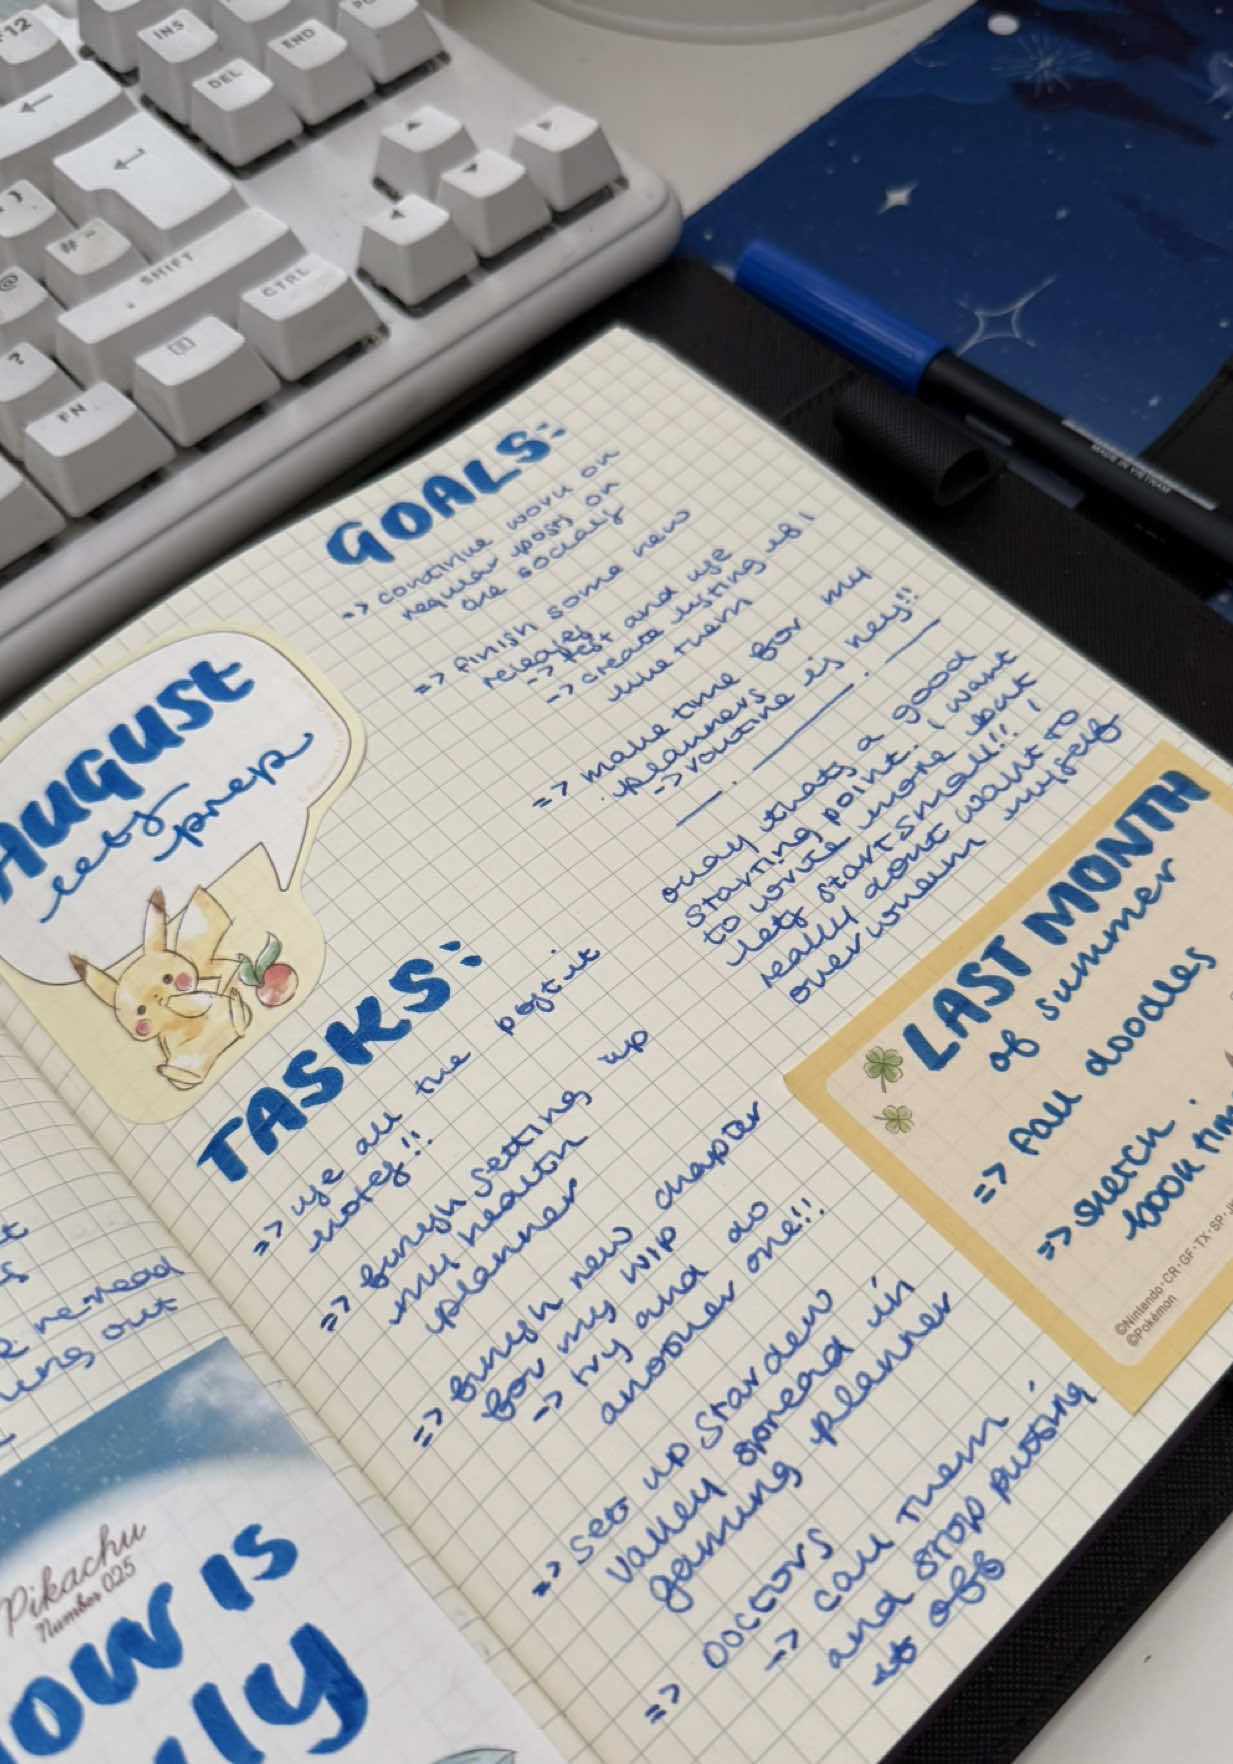 F12
INS
END
DEL
SHIFT
CTRL
FN
?
@
# ~
MADE IN VIETNAM
GOALS:
=> continue work on
regular posts on
the socials
=> finish some new
releases
=> test and use
=> create listing if i
like them
=> make time for my
planners
=> routine is key!!
okay thats a good
starting point. I want
to write more but
lets start small!! i
really dont want to
overwhelm myself
AUGUST
lets
prep
TASKS:
=> use all the postit
notes!!
=> finish setting up
my health
planner
=> finish new chapter
for my wip
=> try and do
another one!!
=> set up stardew
valley spread in
gaming planner
=> doctors
=> call them
and stop putting
it off
LAST MONTH
of summer
=> fall doodles
=> sketch
book
©Nintendo・CR・GF・TX・SP・
©Pokémon
re-read
out
Pikachu
Number 025
IS